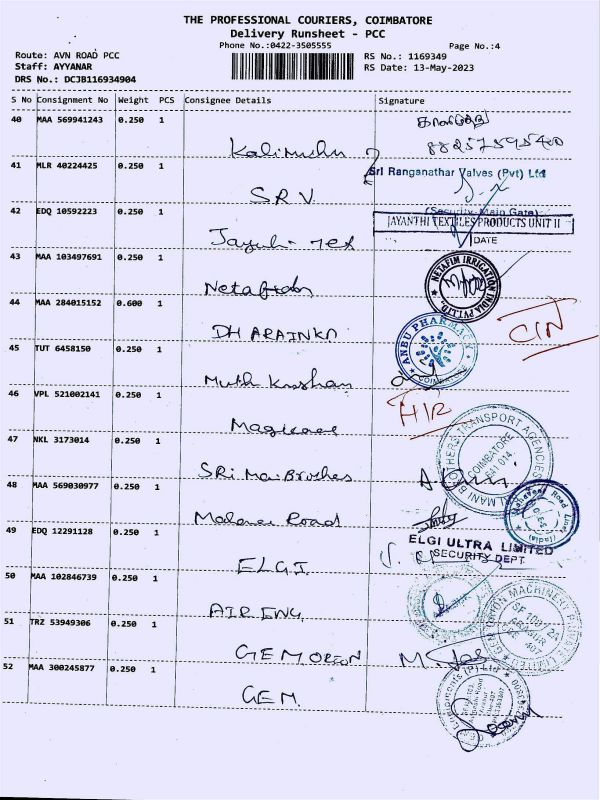 THE PROFESSIONAL COURIERS, COIMBATORE
Delivery Runsheet - PCC
Phone No.:0422-3505555
Page No.:4
Route: AVN ROAD PCC
RS No.: 1169349
Staff: AYYANAR
RS Date: 13-May-2023
DRS No.: DCJB116934904
S No Consignment No Weight PCS Consignee Details Signature
40 MAA 569941243 0.250 1
Kalimuthu
41 MLR 40224425 0.250 1
Sri Ranganathar Valves (Pvt) Ltd
S.R.V.
(Security Main Gate)
42 EDQ 10592223 0.250 1
JAYANTHI TEXTILES PRODUCTS UNIT II
DATE
43 MAA 103497691 0.250 1
Netafim
NETAFIM IRRIGATION INDIA PVT.LTD.
44 MAA 284015152 0.600 1
CIN
ANBU PHARMACY
45 TUT 6458150 0.250 1
COIMBATORE
46 VPL 521002141 0.250 1
HR
47 NKL 3173014 0.250 1
BROTHERS TRANSPORT AGENCIES
COIMBATORE
641 014
SRi Mai Brothes
48 MAA 569030977 0.250 1
Road
49 EDQ 12291128 0.250 1
ELGI ULTRA LIMITED
SECURITY DEPT.
ELGI
50 MAA 102846739 0.250 1
AIR ENG
51 TRZ 53949306 0.250 1
GEM ORION
GEM ORION MACHINERY PRIVATE LIMITED
52 MAA 300245877 0.250 1
GEM